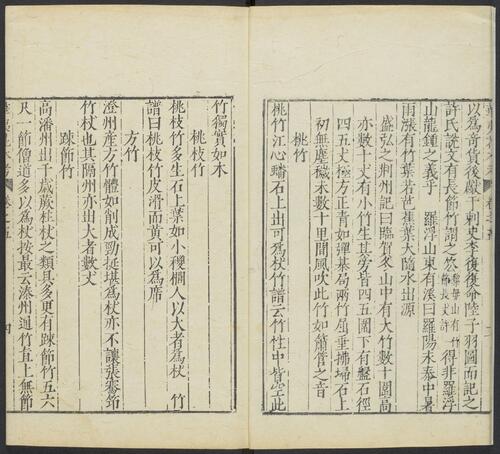 以為奇貨後嚴于刺史李復復命陸子羽圖而記之
許氏說文有長節竹謂之䇭羅浮山有竹節長丈許得非羅浮
山龍鍾之義乎 羅浮山東有溪曰羅陽永泰中暑
雨漲有竹葉若芭蕉葉大隨水出源
盛弘之荆州記曰臨賀冬山中有大竹數十圍高
亦數十丈有小竹生其旁皆四五圍下有盤石徑
四五丈極方正青如彈棊局兩竹屈垂拂掃石上
初無塵穢未數十里聞風吹此竹如簫管之音
桃竹
桃竹江心蟠石上出可為杖竹譜云竹性中皆空此
竹獨實如木
桃枝竹
桃枝竹多生石上葉如小椶櫚人以大者為杖 竹
譜曰桃枝竹皮滑而黃可以為席
方竹
澄州產方竹體如削成勁挺堪為杖亦不讓張騫筇
竹杖也其隔州亦出大者數丈
踈節竹
高潘州出千歲蕨柱杖之類其多更有踈節竹五六
尺一節僧道多以為杖按最云溱州道竹直上無節